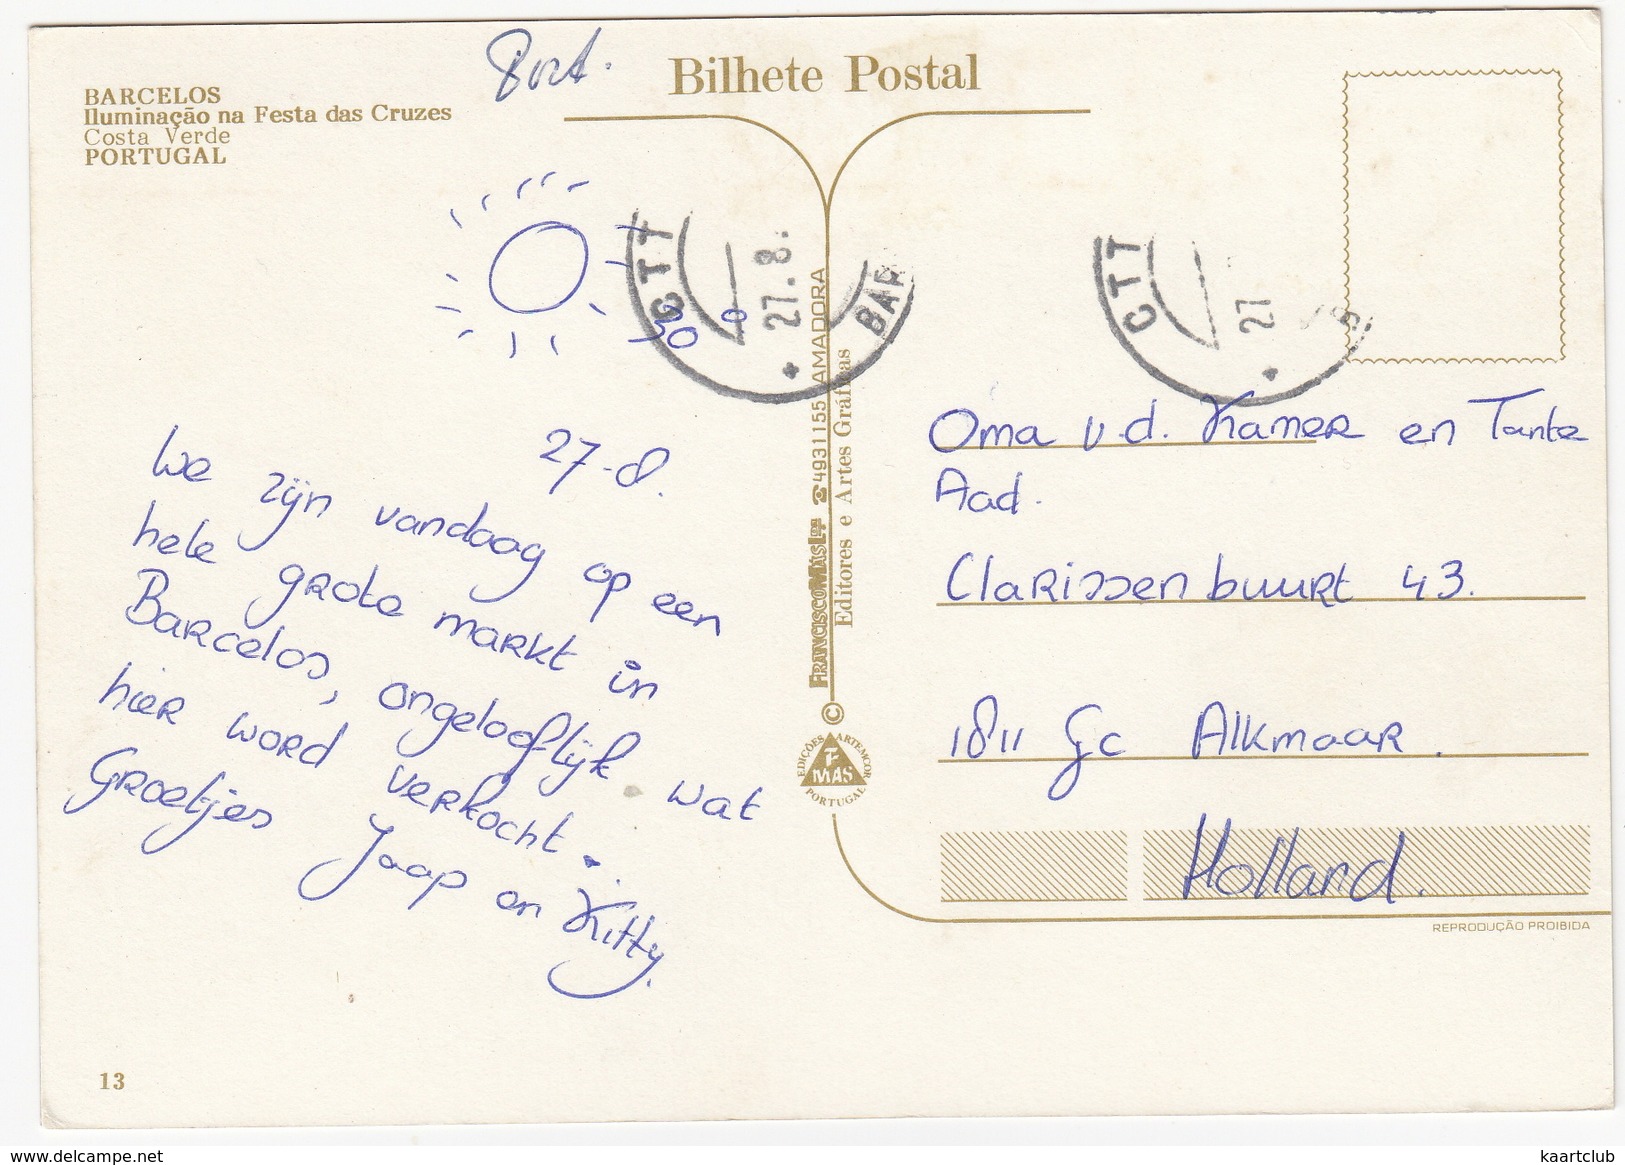 Port.
Bilhete Postal
BARCELOS
Iluminação na Festa das Cruzes
Costa Verde
PORTUGAL
CTT
27.8.
BAR
30°
CTT
27
27-8.
We zijn vandaag op een
hele grote markt in
Barcelos, ongelooflijk wat
hier word verkocht.
Groetjes Jaap en Kitty.
FRANCISCO MAS LDA ☎ 4931155 AMADORA
Editores e Artes Gráficas
©
EDIÇÕES ARTEMCOR
F. MAS
PORTUGAL
Oma v.d. Kamer en Tante
Aad.
Clarissenbuurt 43.
1811 GC Alkmaar.
Holland.
REPRODUÇÃO PROIBIDA
13
https://www.delcampe.net
kaartclub